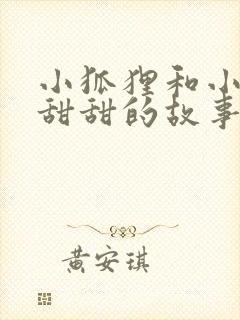 小狐狸和小
甜甜的故事
黄安琪